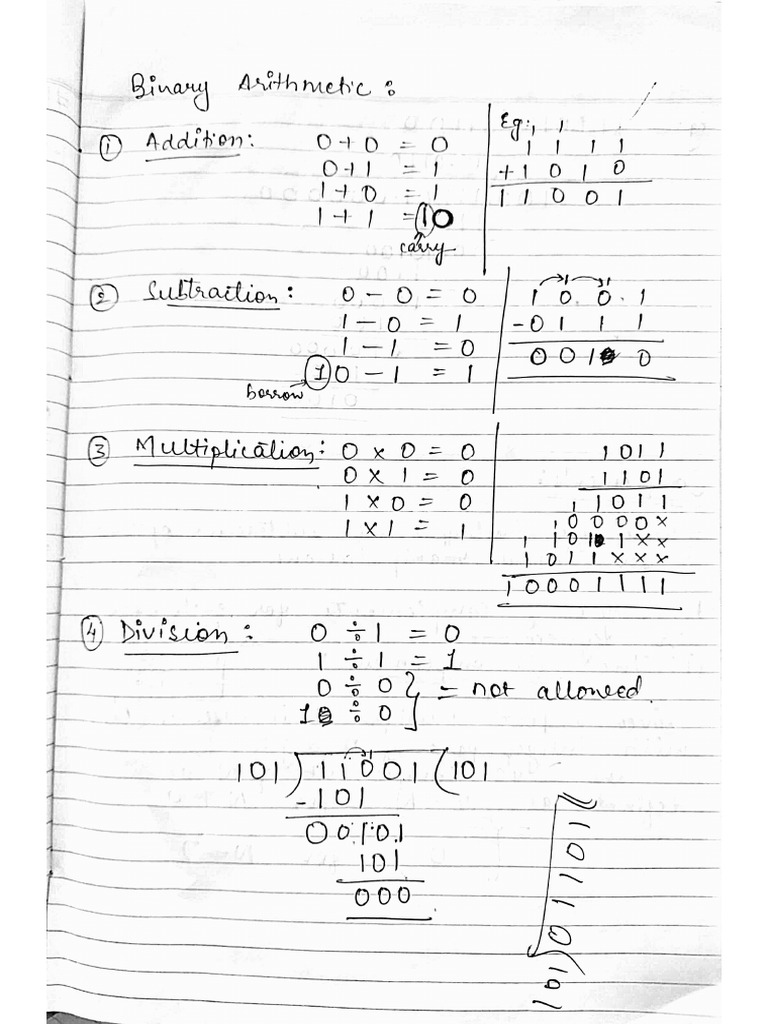 Binary Arithmetic :
① Addition : 0 + 0 = 0
0 + 1 = 1
1 + 0 = 1
1 + 1 = 10
carry
Eg: 1 1
1 1 1 1
+ 1 0 1 0
1 1 0 0 1
② Subtraction : 0 - 0 = 0
1 - 0 = 1
1 - 1 = 0
1 0 - 1 = 1
borrow
1 1
1 0 0 1
- 0 1 1 1
0 0 1 0
③ Multiplication : 0 x 0 = 0
0 x 1 = 0
1 x 0 = 0
1 x 1 = 1
1011
1101
1 1 0 1 1
1 0 0 0 0 x
1 1 0 1 1 x x
1 0 1 1 x x x
1 0 0 0 1 1 1 1
④ Division : 0 ÷ 1 = 0
1 ÷ 1 = 1
0 ÷ 0 } = not allowed.
1 ÷ 0
101 ) 11001 ( 101
- 101
00101
101
000
10110 ( 101